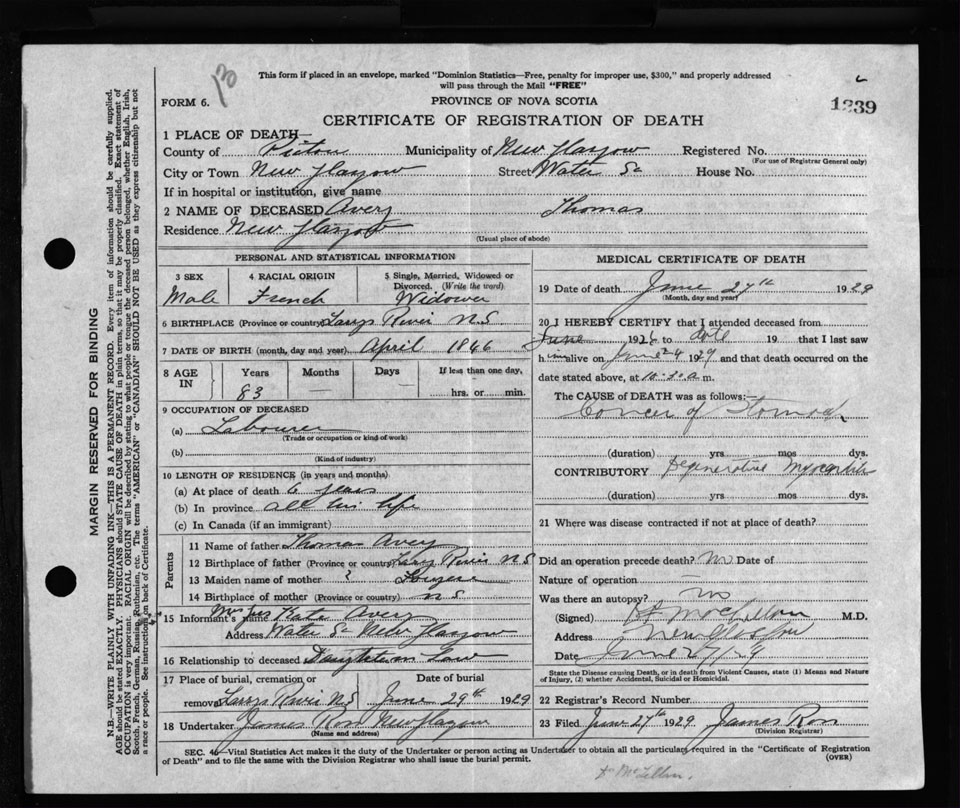 This form if placed in an envelope, marked "Dominion Statistics—Free, penalty for improper use, $300," and properly addressed
will pass through the Mail "FREE"
FORM 6. PROVINCE OF NOVA SCOTIA 1239
CERTIFICATE OF REGISTRATION OF DEATH
1 PLACE OF DEATH—
County of Pictou Municipality of New Glasgow Registered No.
(For use of Registrar General only)
City or Town New Glasgow Street Water St House No.
If in hospital or institution, give name
2 NAME OF DECEASED Avery Thomas
Residence New Glasgow
(Usual place of abode)
PERSONAL AND STATISTICAL INFORMATION
3 SEX 4 RACIAL ORIGIN 5 Single, Married, Widowed or
Divorced. (Write the word)
Male French Widower
6 BIRTHPLACE (Province or country) Larrys River N S
7 DATE OF BIRTH (month, day and year) April 1846
8 AGE IN Years Months Days If less than one day,
83 — — hrs. or min.
9 OCCUPATION OF DECEASED
(a) Labourer
(Trade or occupation or kind of work)
(b)
(Kind of industry)
10 LENGTH OF RESIDENCE (in years and months)
(a) At place of death 6 years
(b) In province all his life
(c) In Canada (if an immigrant)
Parents
11 Name of father Thomas Avery
12 Birthplace of father (Province or country) Larrys River N S
13 Maiden name of mother ?
14 Birthplace of mother (Province or country) N S
15 Informant's name Mrs Kate Avery
Address Water St New Glasgow
16 Relationship to deceased Daughter in Law
17 Place of burial, cremation or Date of burial
removal Larrys River N S June 29th 1929
18 Undertaker James Ross New Glasgow
(Name and address)
MEDICAL CERTIFICATE OF DEATH
19 Date of death June 27th 1929
(Month, day and year)
20 I HEREBY CERTIFY that I attended deceased from
June 1928 to date 19 that I last saw
him alive on June 24 1929 and that death occurred on the
date stated above, at 10.30 a m.
The CAUSE of DEATH was as follows:—
Cancer of Stomach
(duration) yrs mos dys.
CONTRIBUTORY Degenerative myocarditis
(duration) yrs. mos dys.
21 Where was disease contracted if not at place of death?
Did an operation precede death? No Date of
Nature of operation —
Was there an autopsy? No
(Signed) M.D.
Address New Glasgow
Date June 27/29
State the Disease causing Death, or in death from Violent Causes, state (1) Means and Nature
of Injury, (2) whether Accidental, Suicidal or Homicidal.
22 Registrar's Record Number
23 Filed June 27th 1929 James Ross
(Division Registrar)
SEC. 46—Vital Statistics Act makes it the duty of the Undertaker or person acting as Undertaker to obtain all the particulars required in the "Certificate of Registration
of Death" and to file the same with the Division Registrar who shall issue the burial permit. (OVER)
MARGIN RESERVED FOR BINDING
N.B.—WRITE PLAINLY WITH UNFADING INK—THIS IS A PERMANENT RECORD. Every item of information should be carefully supplied.
AGE should be stated EXACTLY. PHYSICIANS should STATE CAUSE OF DEATH in plain terms, so that it may be properly classified. Exact statement of
OCCUPATION is very important. RACIAL ORIGIN will be described by stating to what people or tongue the deceased person belonged, whether English, Irish,
Scotch, French, German, Russian, Ruthenian, etc. The terms "AMERICAN" or "CANADIAN" SHOULD NOT BE USED as they express citizenship but not
a race or people. See instructions on back of Certificate.